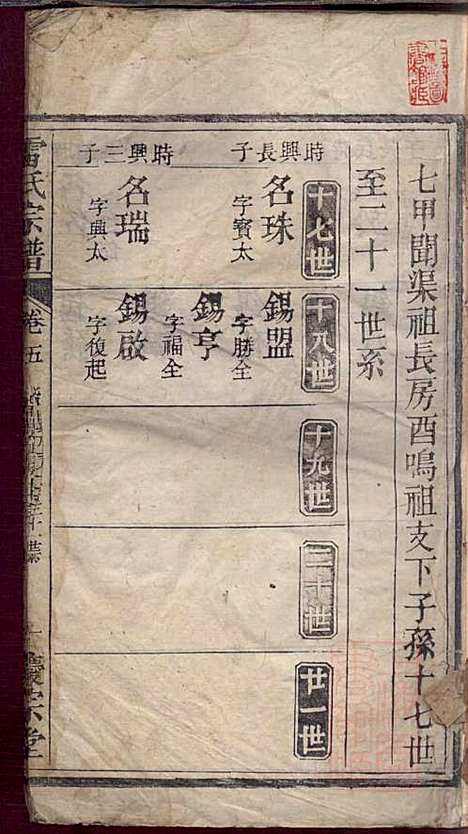 七甲聞渠祖長房酉鳴祖支下子孫十七世
至二十一世系
十七世
十八世
十九世
二十世
廿一世
時興長子
名珠
字寶太
錫盟
字勝全
錫亨
字福全
時興三子
名瑞
字典太
錫啟
字復起
雷氏宗譜
卷五
慶宗堂